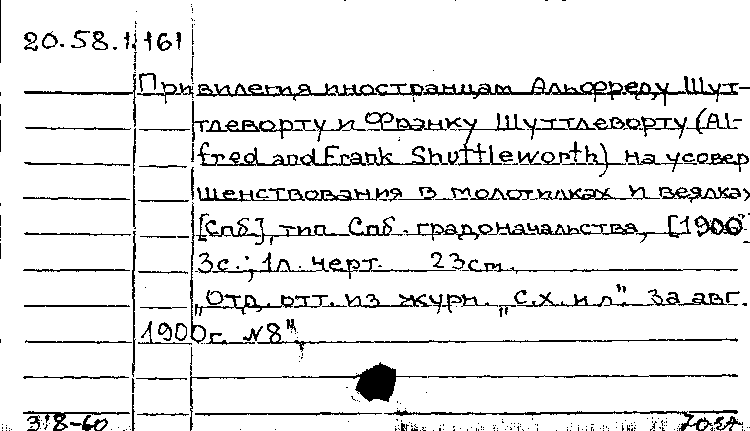 20.58.1.161
Привилегия иностранцам Альфреду Шут-
тлеворту и Франку Шуттлеворту (Al-
fred and Frank Shuttleworth) на усовер
шенствования в молотилках и веялках
[Спб], тип. Спб. градоначальства, [1900]
3с.; 1л. черт. 23см.
„Отд. отт. из журн. „С.Х. и Л". за авг.
1900г. №8",
318-60